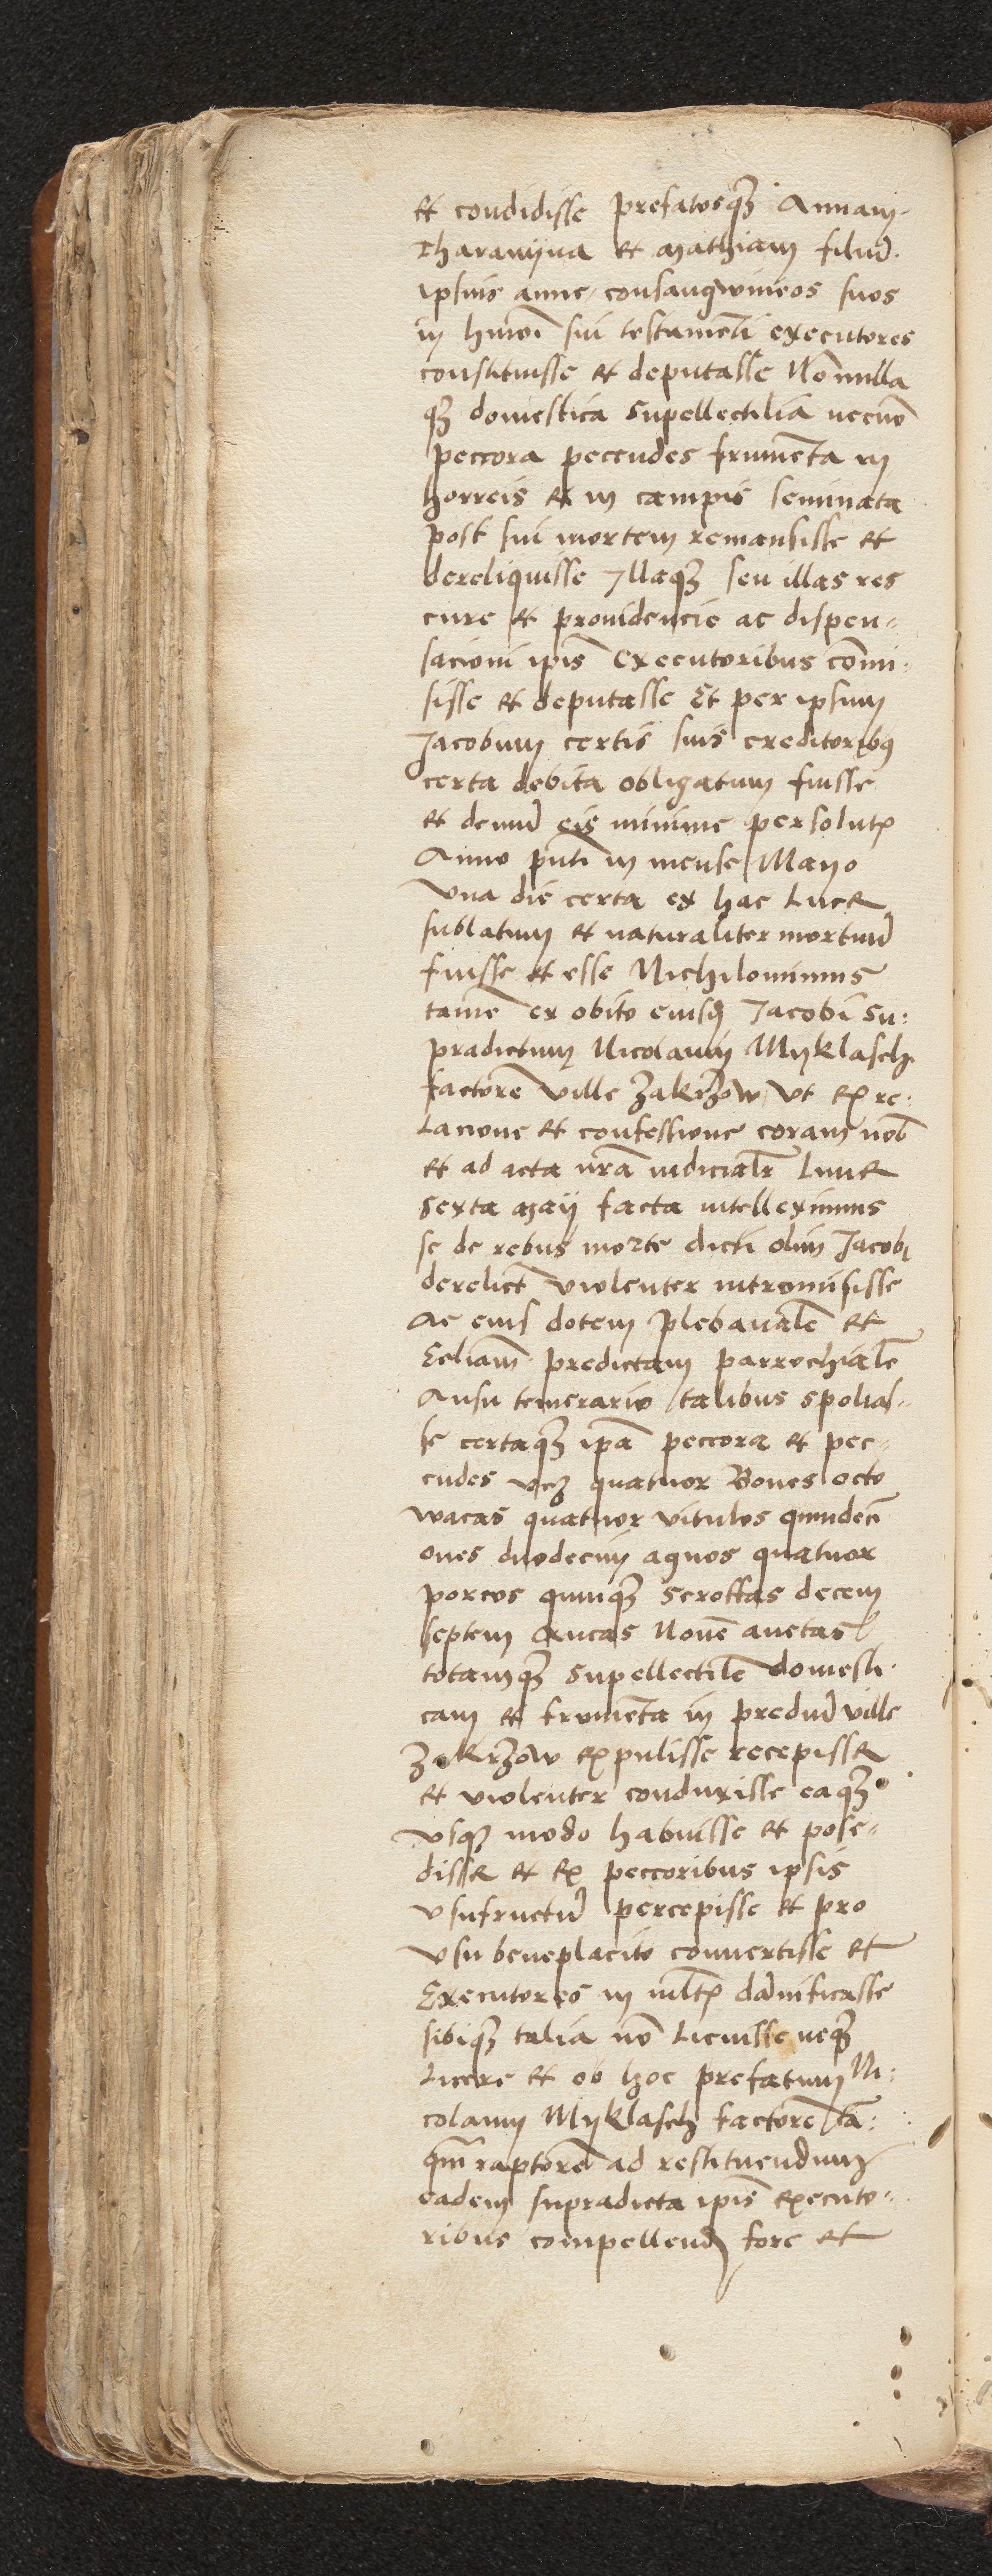 et condidisse prefatosq₃ Annam
Tharanyna et Mathiam filiū
ipsius anne consangwineos suos
in hmōi sui testamēti executores
constituisse et deputasse Nōnulla
q₃ domestica supellectilia necnō
peccora pecudes frumēta in
horreis et in campis seminata
post sui mortem remansisse et
dereliquisse yllaq₃ seu illas res
cure et prouidencie ac dispen-
sacioni ip̄is executoribus com̄i-
sisse et deputasse Et per ipsum
Jacobum certis suis creditorib9
certa debita obligatum fuisse
et demū eis minime persolut
Anno pn̄ti in mense Mayo
Vna die certa ex hac Luce
sublatum et naturaliter mortuū
fuisse et esse Nichilominus
tamē ex obito eiusd Jacobi su-
pradictum Nicolaum Myklasch
factorē ville Zakrzow vt ex re-
lacione et confessione coram nob̄
et ad acta nr̄a iudicialr̄ Lune
sexta Maij facta intelleximus
se de rebus morte dicti olim Jacobi
derelict̄ violenter intromisisse
Ac eius dotem plebanalē et
Eccliam predictam parrochialē
Ausu temerario talibus spolias-
se certaq₃ ip̄a peccora et pec-
cudes vc₃ quatuor Boues octo
wacas quatuor vitulos quindecī
oues duodecim agnos quatuor
porcos quinq₃ scroffas decem
septem Aucas Nouē anetas
totamq₃ supellectilē domesti-
cam et frumēta in prediū ville
Zakrzow expulisse recepisse
et violenter conduxisse eaq₃
vsq₃ modo habuisse et posse-
disse et ex peccoribus ipsis
vsufructū percepisse et pro
vsu beneplacito conuertisse et
Executores in mlt̄ dānificasse
sibiq₃ talia nō Licuisse neq₃
Licere et ob hoc prefatum Ni-
colaum Myklasch factorē tā-
qm̄ raptorē ad restituendum
eadem supradicta ip̄is executo-
ribus compellend fore et